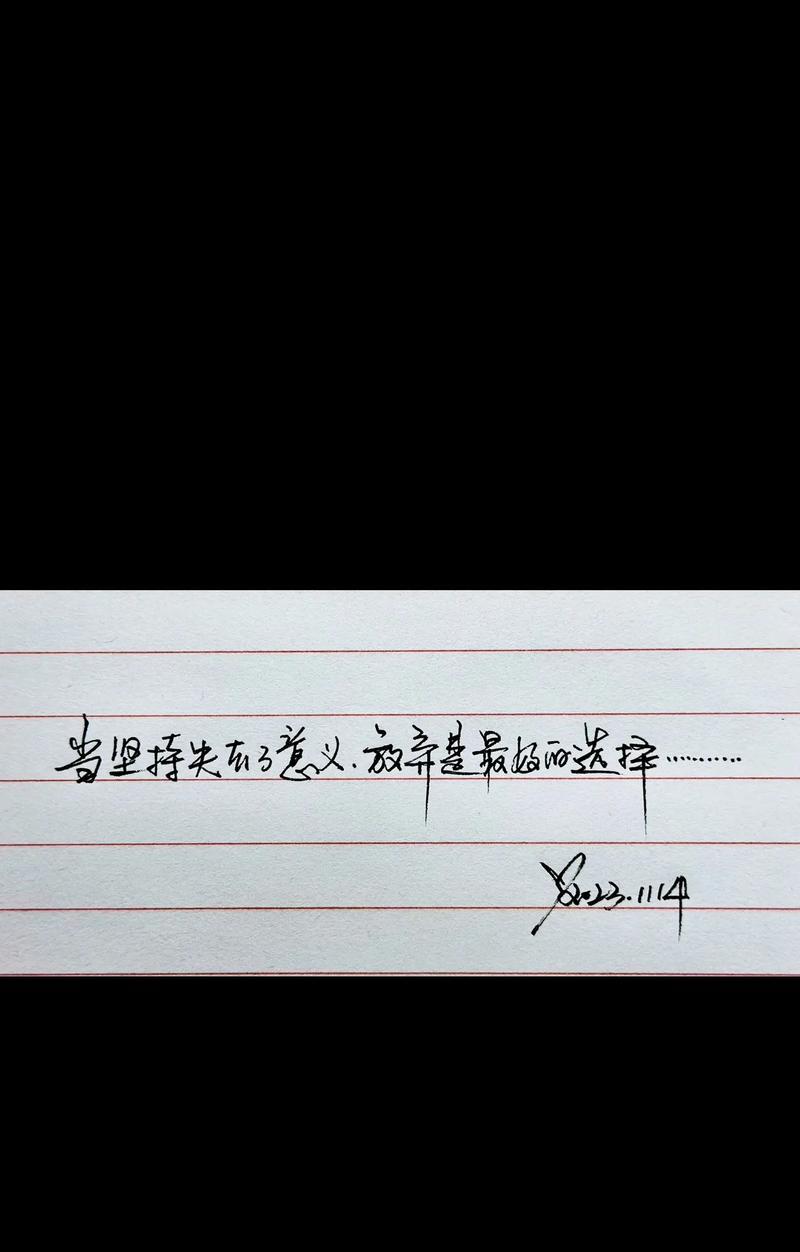 当坚持失去了意义.放弃是最好的选择…………
2023.1114